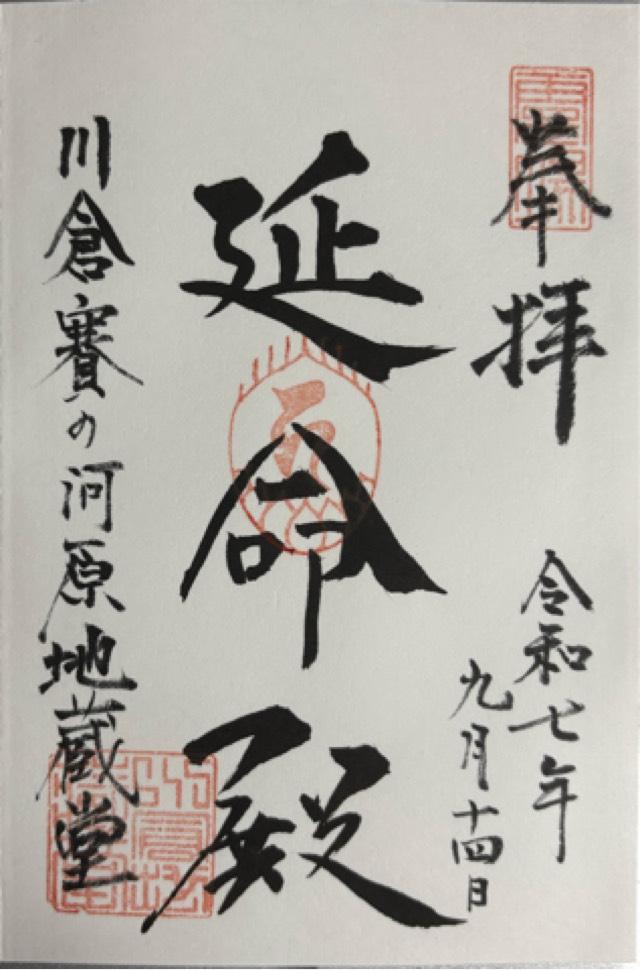 奉拝
令和七年
九月十四日
延命殿
川倉賽の河原地蔵堂